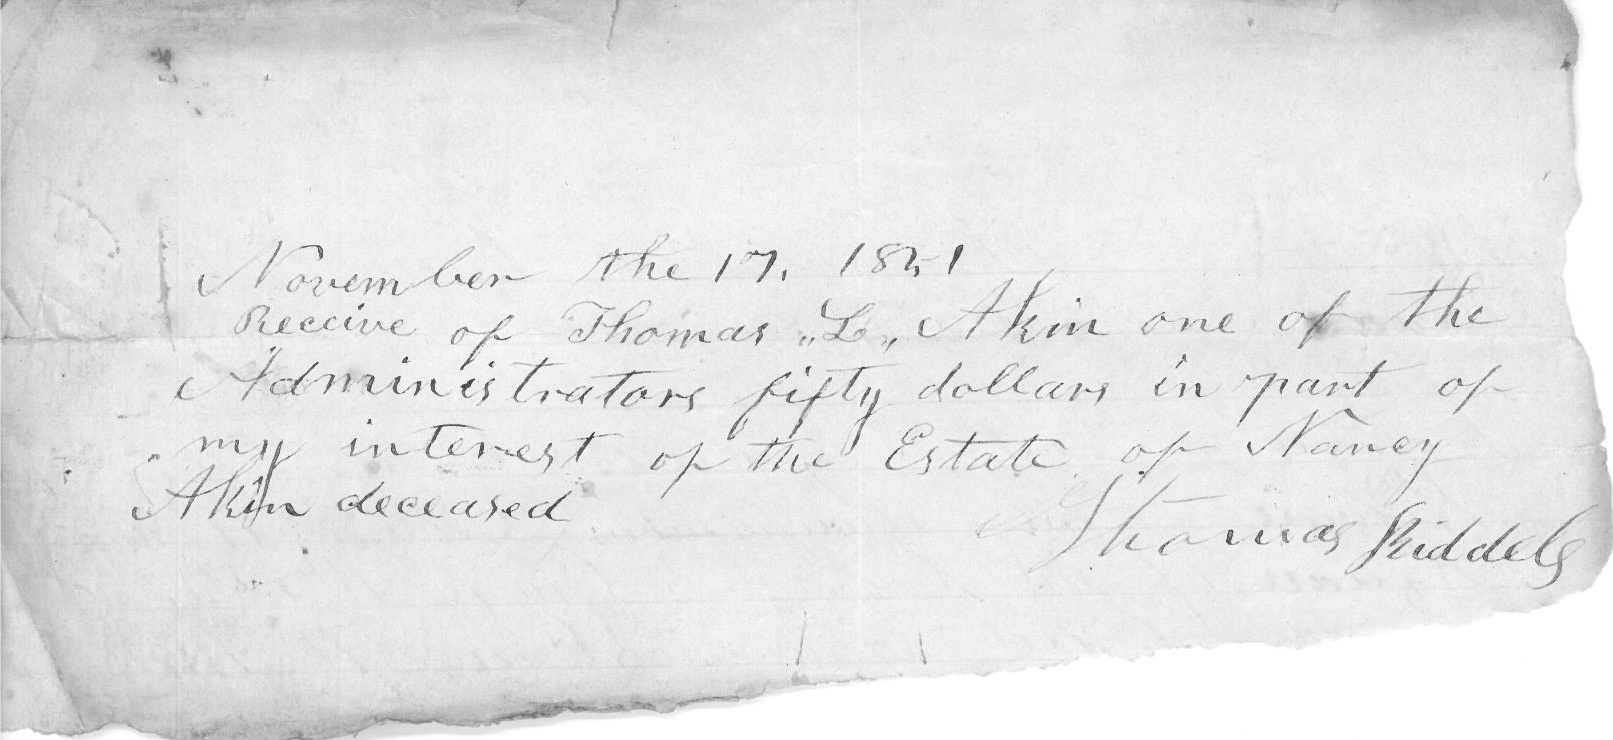 November the 17, 1851
Receive of Thomas „L„ Akin one of the
Administrators fifty dollars in part of
my interest of the Estate of Nancy
Akin deceased
Thomas Riddels